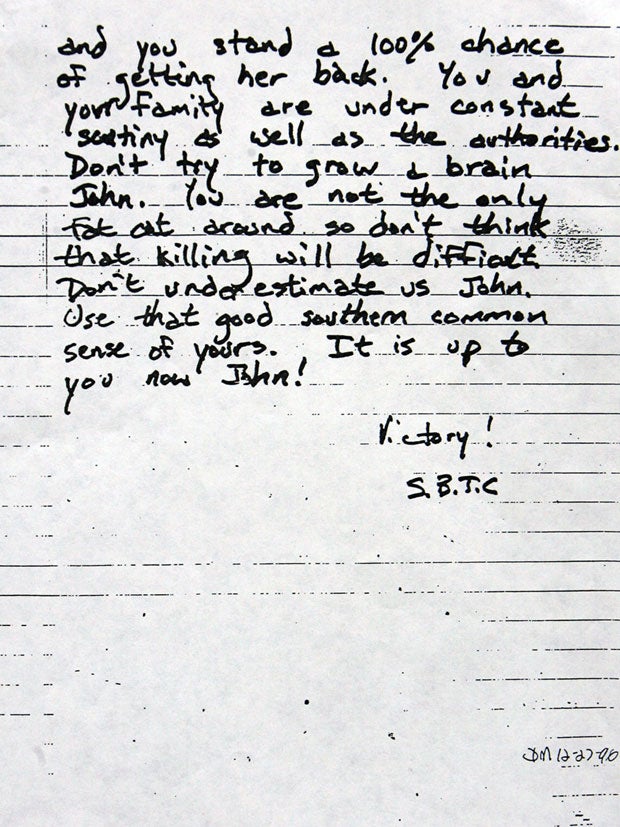 and you stand a 100% chance
of getting her back. You and
your family are under constant
scutiny as well as the authorities.
Don't try to grow a brain
John. You are not the only
fat cat around so don't think
that killing will be difficult.
Don't underestimate us John.
Use that good southern common
sense of yours. It is up to
you now John!
Victory!
S.B.T.C
DM 12-27-96